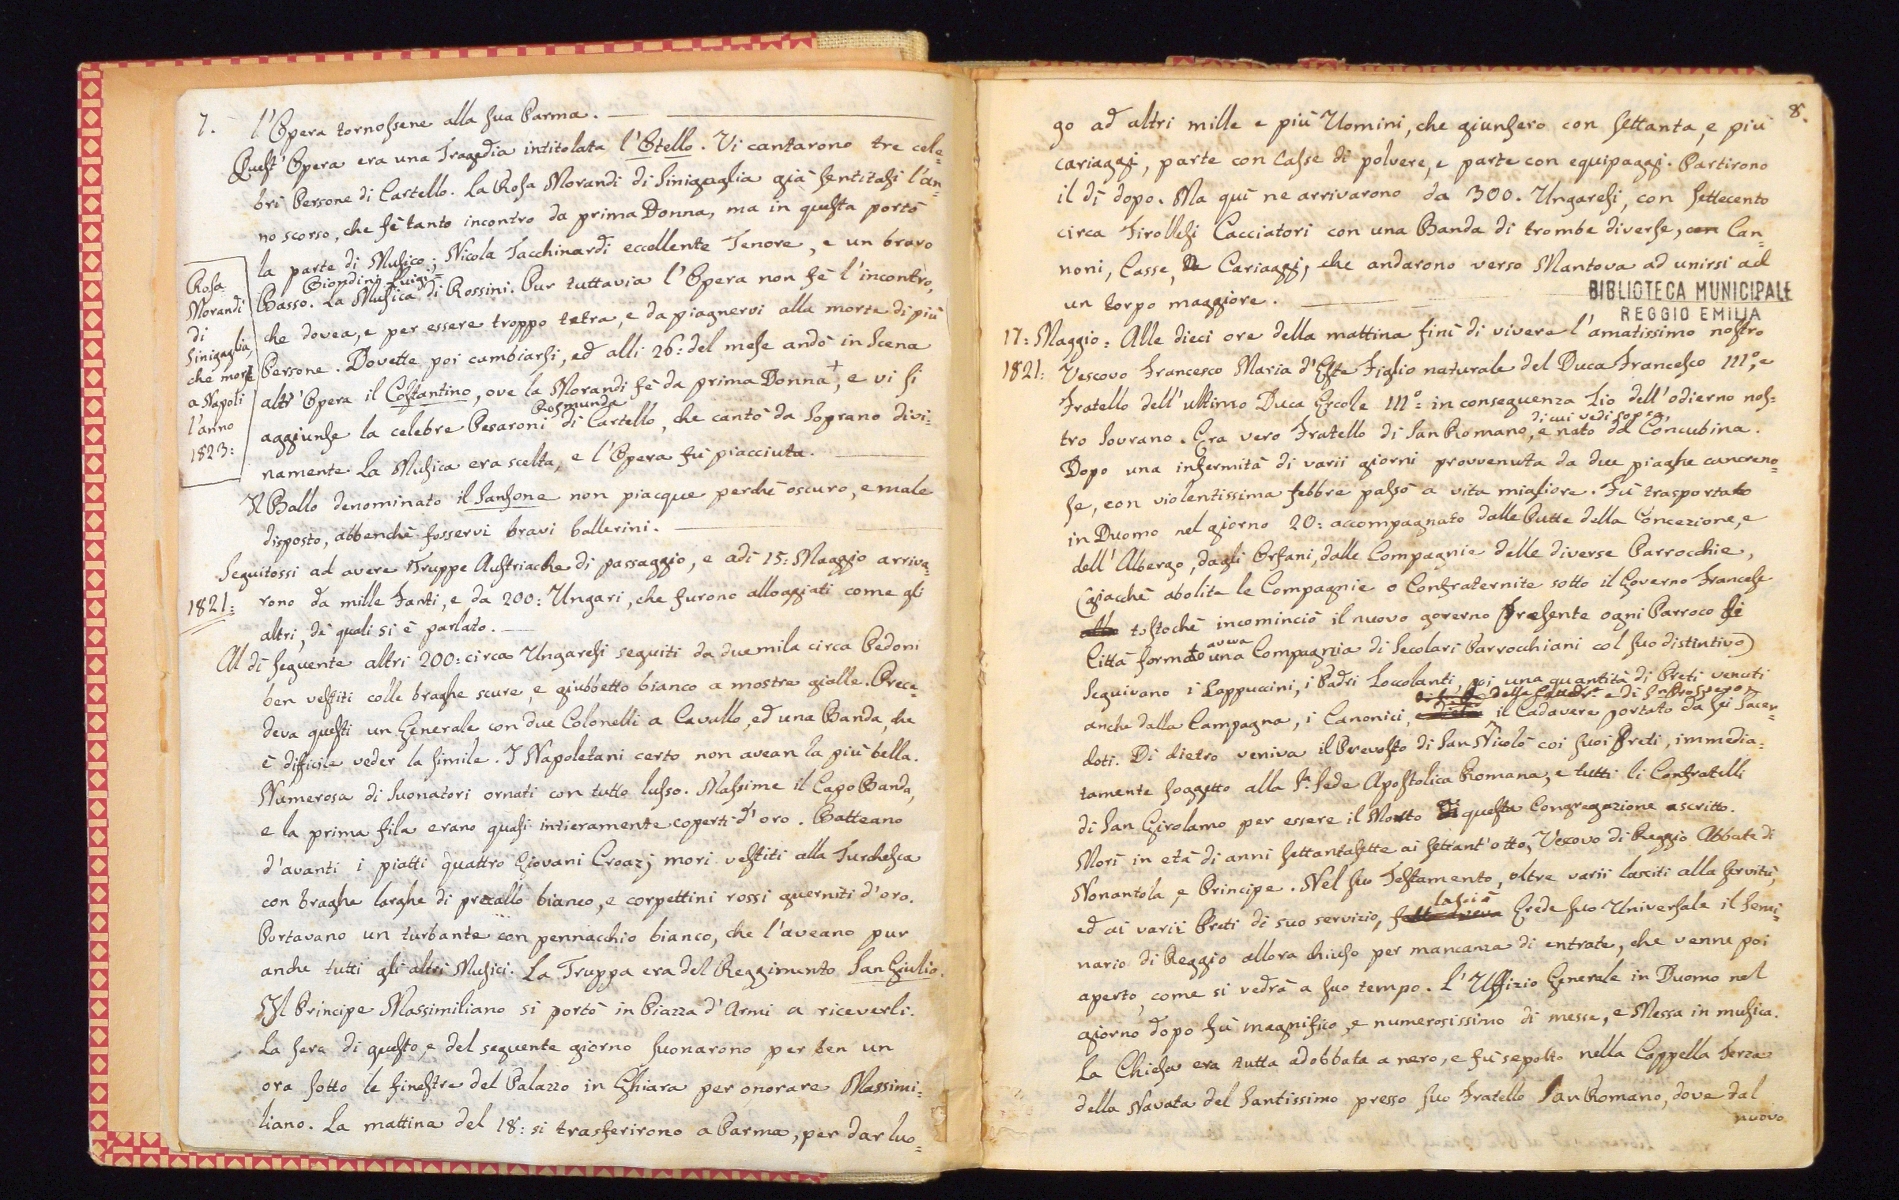 7.
l'Opera tornossene alla sua Parma.
Quest'Opera era una Tragedia intitolata l'Otello. Vi cantarono tre cele=
bri Persone di Cartello. La Rosa Morandi di Sinigaglia già sentitasi l'an=
no scorso, che fè tanto incontro da prima Donna, ma in questa portò
la parte di Musico; Nicola Tacchinardi eccellente Tenore, e un bravo
Biondini Luigi
Basso. La Musica di Rossini. Pur tuttavia l'Opera non fè l'incontro,
che dovea, e per essere troppo tetra, e da piagnervi alla morte di più
Persone. Dovette poi cambiarsi, ed alli 26: del mese andò in Scena
altr'Opera il Costantino, ove la Morandi fè da prima Donna+, e vi si
Rosmunda
aggiunse la celebre Pesaroni di Cartello, che cantò da Soprano divi=
namente La Musica era scelta, e l'Opera fù piacciuta.
Rosa
Morandi
di
Sinigaglia,
che morì
a Napoli
l'anno
1823:
Il Ballo denominato il Sansone non piacque perchè oscuro, e male
disposto, abbenchè fosservi bravi ballerini.
Seguitossi ad avere Truppe Austriache di passaggio, e adì 15: Maggio arriva=
1821:
rono da mille Fanti, e da 200: Ungari, che furono alloggiati come gli
altri, de quali si è parlato.
Al dì seguente altri 200: circa Ungaresi seguiti da duemila circa Pedoni
ben vestiti colle braghe scure, e giubbetto bianco a mostre gialle. Prece=
deva questi un Generale con due Colonelli a Cavallo, ed una Banda, che
è difficile veder la simile. I Napoletani certo non avean la più bella.
Numerosa di Suonatori ornati con tutto lusso. Massime il Capo Banda,
e la prima fila erano quasi intieramente coperti d'oro. Batteano
d'avanti i piatti quattro Giovani Croazj mori vestiti alla Turchesca
con braghe larghe di precallo bianco, e corpettini rossi guerniti d'oro.
Portavano un turbante con pennacchio bianco, che l'aveano pur
anche tutti gli altri Musici. La Truppa era del Reggimento San Giulio.
Il Principe Massimiliano si portò in Piazza d'Armi a riceverli.
La sera di questo, e del seguente giorno suonarono per ben un
ora sotto le finestre del Palazzo in Ghiara per onorare Massimi=
liano. La mattina del 18: si trasferirono a Parma, per dar luo=
8.
go ad altri mille e più Uomini, che giunsero con settanta, e più
cariaggi, parte con Casse di polvere, e parte con equipaggi. Partirono
il dì dopo. Ma quì ne arrivarono da 300. Ungaresi, con settecento
circa Tirollesi Cacciatori con una Banda di trombe diverse, con Can=
noni, Casse, Cariaggi, che andarono verso Mantova ad unirsi ad
un Corpo maggiore.
BIBLIOTECA MUNICIPALE
REGGIO EMILIA
17: Maggio: Alle dieci ore della mattina finì di vivere l'amatissimo nostro
1821: Vescovo Francesco Maria d'Este Figlio naturale del Duca Francesco III°, e
Fratello dell'ultimo Duca Ercole III°: in conseguenza Zio dell'odierno nos=
di cui vedi sopra,
tro Sovrano. Era vero Fratello di San Romano, e nato da Concubina.
Dopo una infermità di varii giorni provvenuta da due piaghe cancreno=
se, con violentissima febbre passò a vita migliore. Fù trasportato
in Duomo nel giorno 20: accompagnato dalle Putte della Concezione, e
dell'Albergo, dagli Orfani, dalle Compagnie delle diverse Parrocchie,
(giacchè abolite le Compagnie o Confraternite sotto il Governo Francese
tostochè incominciò il nuovo governo presente ogni Parroco di
aveva
Città formato una Compagnia di Secolari Parrocchiani col suo distintivo)
Seguivano i Cappuccini, i Padri Zoccolanti, poi una quantità di Preti venuti
anche dalla Campagna, i Canonici, il Cadavere portato da sei Sacer=
doti. Di dietro veniva il Prevosto di San Nicolò coi suoi Preti, immedia=
tamente soggetto alla S. Sede Apostolica Romana, e tutti li Confratelli
di San Girolamo per essere il Morto di questa Congregazione ascritto.
Morì in età di anni settantasette ai settant'otto, Vescovo di Reggio Abbate di
Nonantola, e Principe. Nel suo Testamento, oltre varii lasciti alla servitù,
lasciò
ed ai varii Preti di suo servizio, Erede suo Universale il Semi=
nario di Reggio allora chiuso per mancanza di entrate, che venne poi
aperto, come si vedrà a suo tempo. L'Uffizio Generale in Duomo nel
giorno dopo fù magnifico, e numerosissimo di messe, e Messa in musica.
La Chiesa era tutta adobbata a nero, e fù sepolto nella Cappella terza
della Navata del Santissimo presso suo Fratello San Romano, dove dal
nuovo